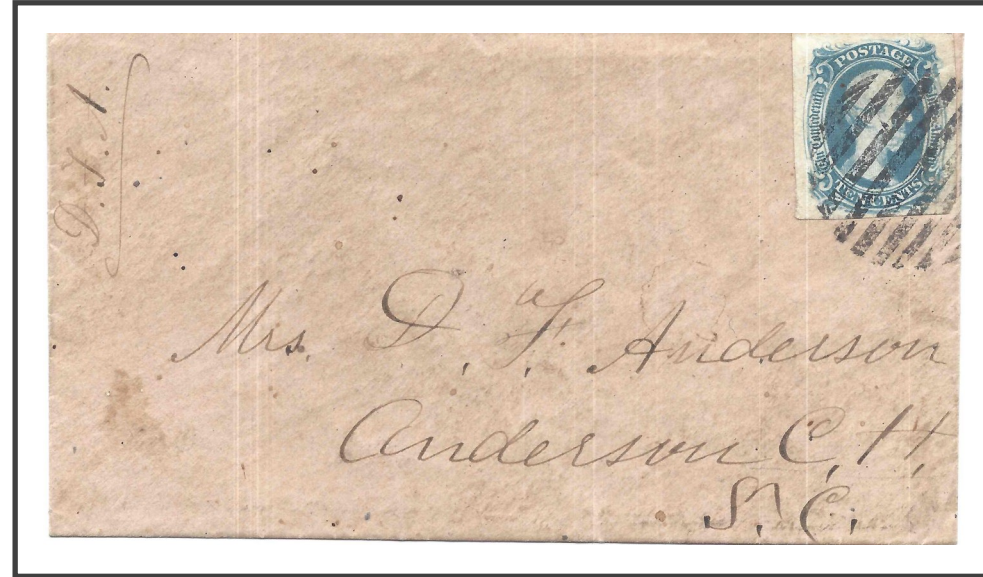 D. F. A.
POSTAGE
The Confederate States of America
TEN CENTS
Mrs. D. F. Anderson
Anderson C. H.
S. C.